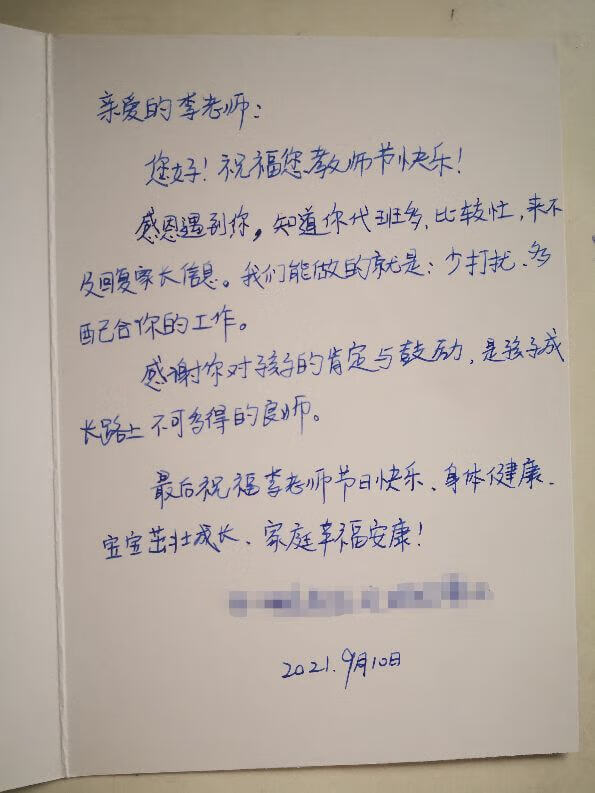 亲爱的李老师：
您好！祝福您教师节快乐！
感恩遇到你，知道你代班多，比较忙，来不
及回复家长信息。我们能做的就是：少打扰、多
配合你的工作。
感谢你对孩子的肯定与鼓励，是孩子成
长路上不可多得的良师。
最后祝福李老师节日快乐、身体健康、
宝宝茁壮成长、家庭幸福安康！
2021.9月10日